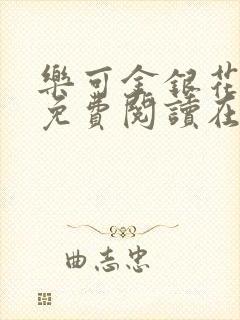 樂可金銀花
免費閱讀在
曲志忠